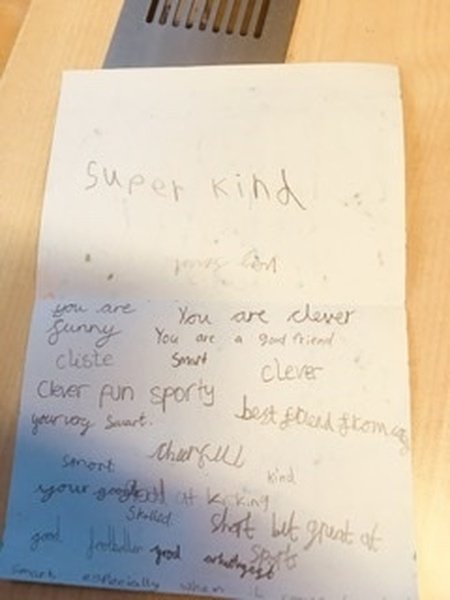 super kind
you are
funny
You are clever
You are a good friend
cliste
Smart
clever
Clever fun sporty
best friend from
your very smart.
cheerfull
smart
kind
your good at kicking
Skilled
short but great at
sports
good footballer good
smart especially when